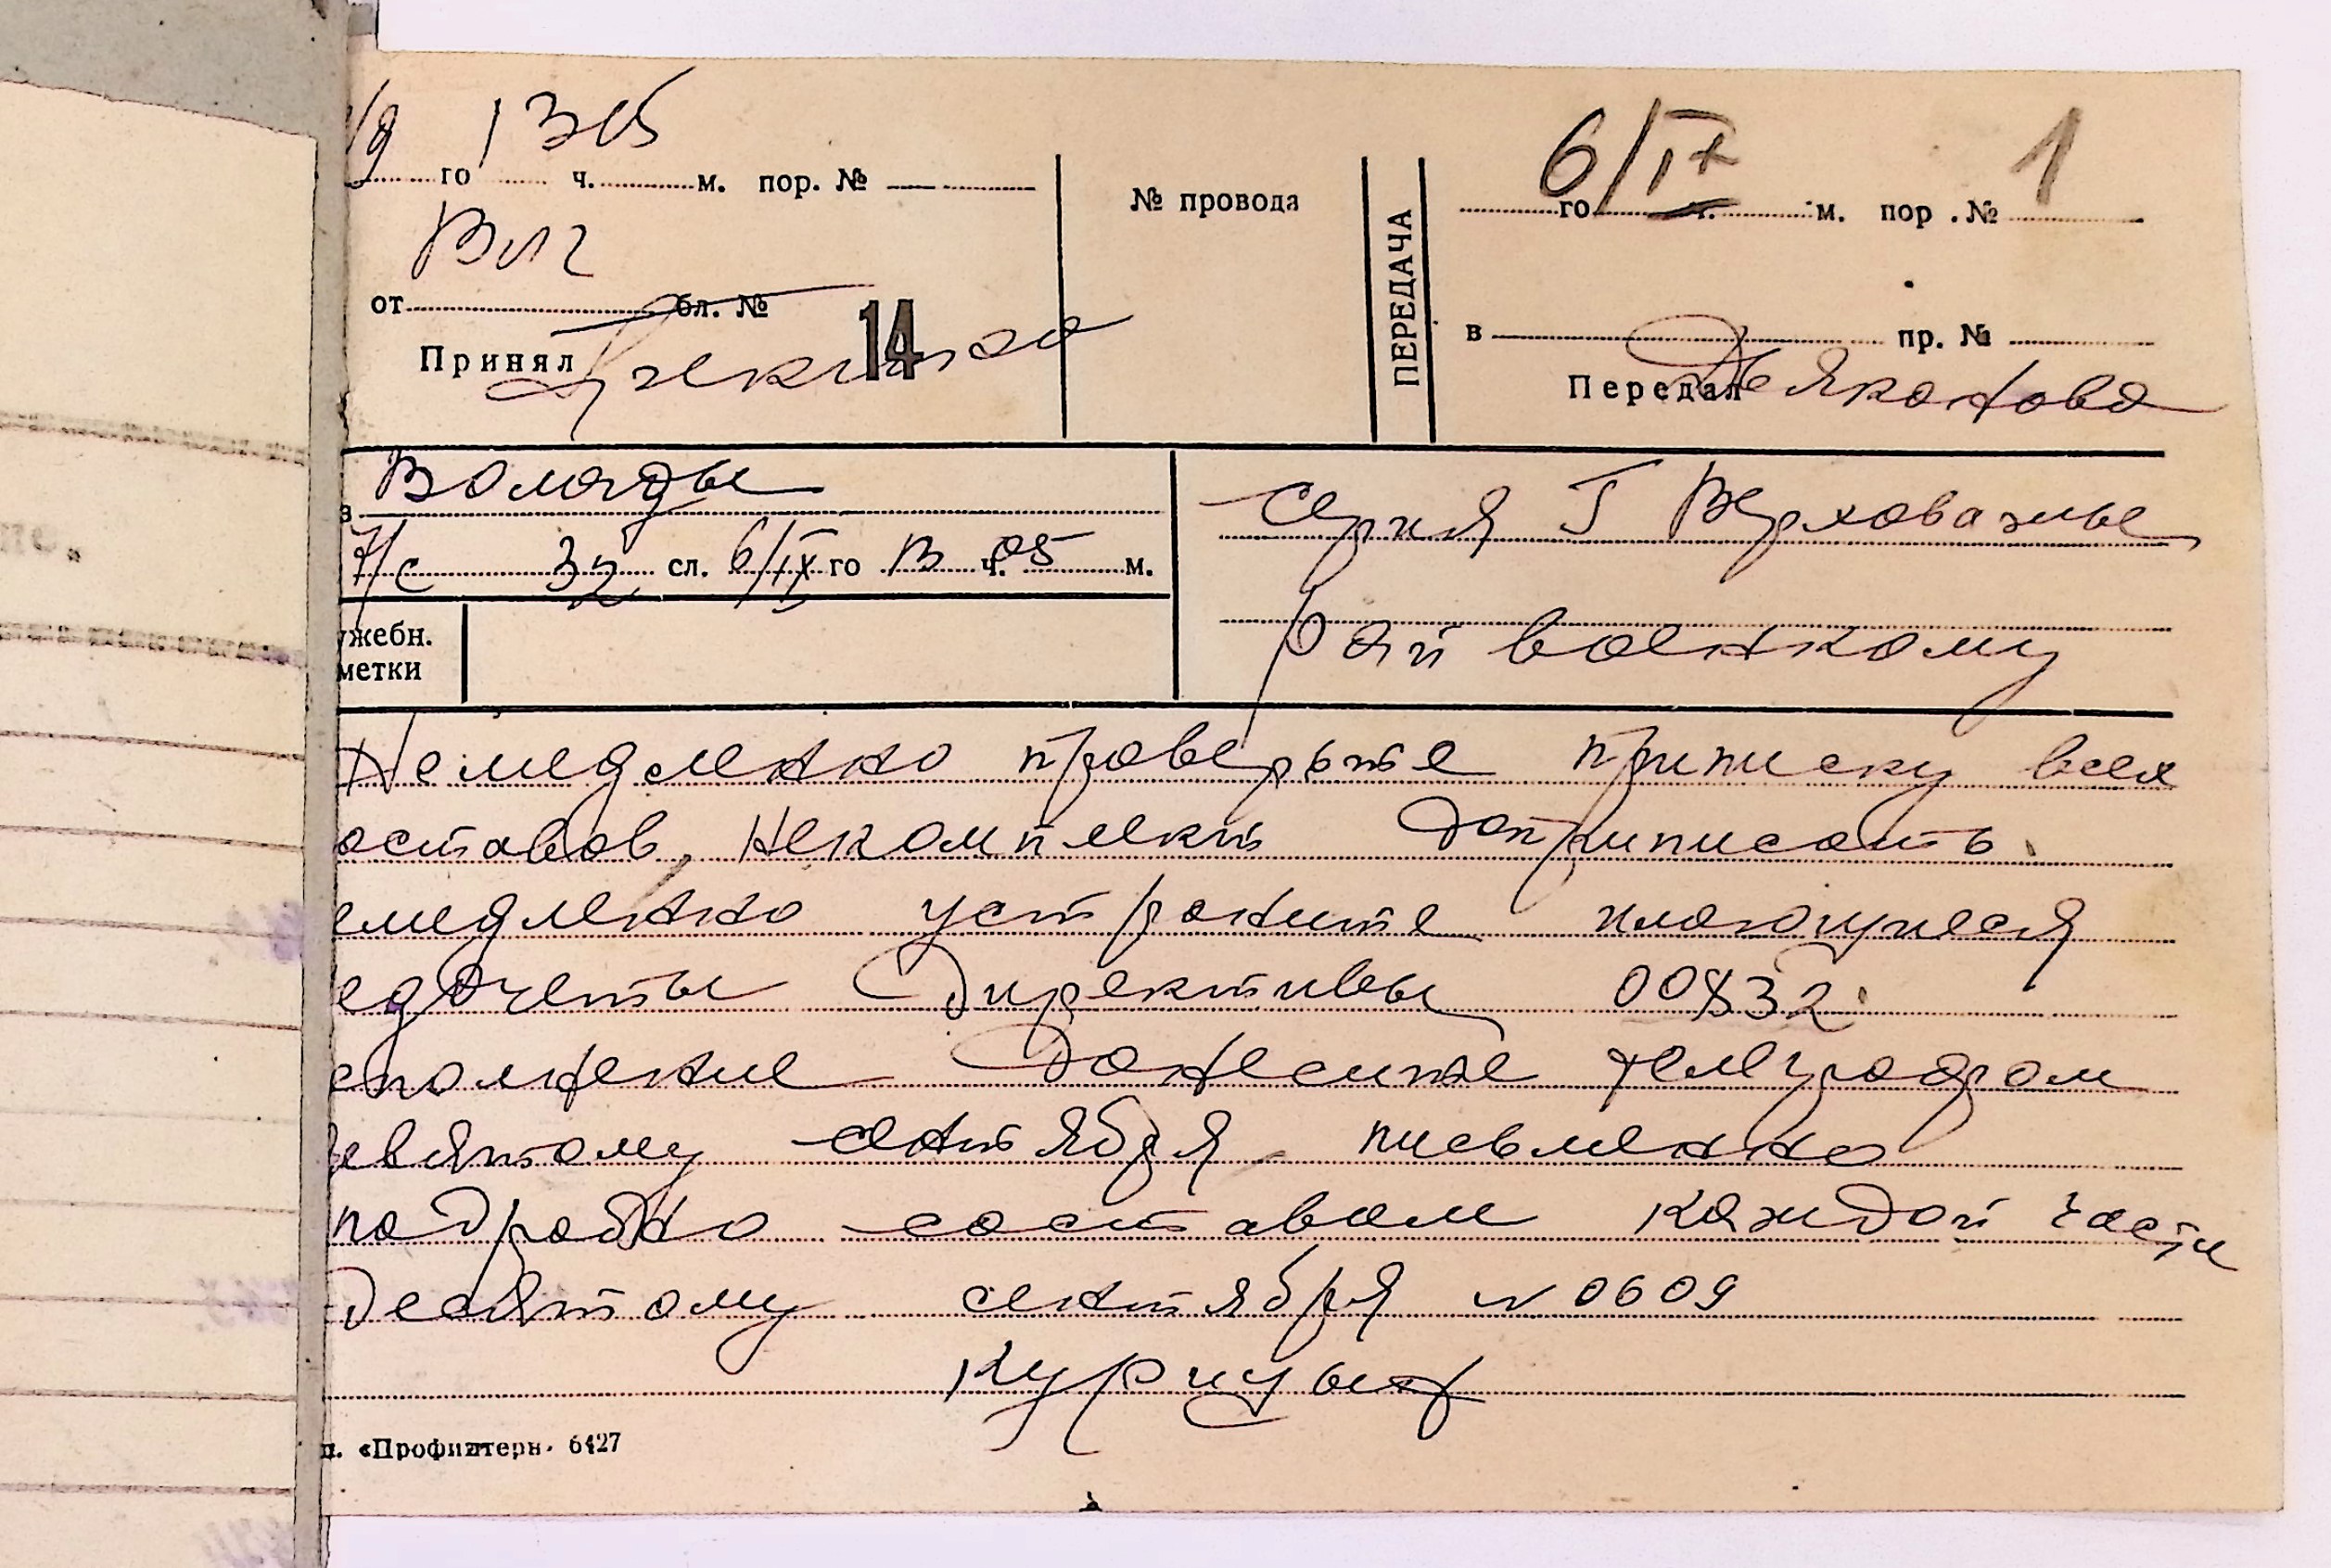 /9 го 13 ч. 15 м. пор. №
Влг
от бл. №
14
Принял
№ провода
ПЕРЕДАЧА
6/IX го ч. м. пор. № 1
в пр. №
Передал Дьяконова
в Вологды
7/с 32 сл. 6/IX го 13 ч. 05 м.
ужебн.
метки
Серия Г Верховажье
Райвоенкому
Немедленно проверьте приписку всех
оставов, некомплект доприписать.
емедленно устраните имеющиеся
едочеты директивы 00832.
сполнение донесите телеграфом
девятому сентября письменно
подробно составом каждой части
десятому сентября N 0609
п. «Профинтерн» 6427